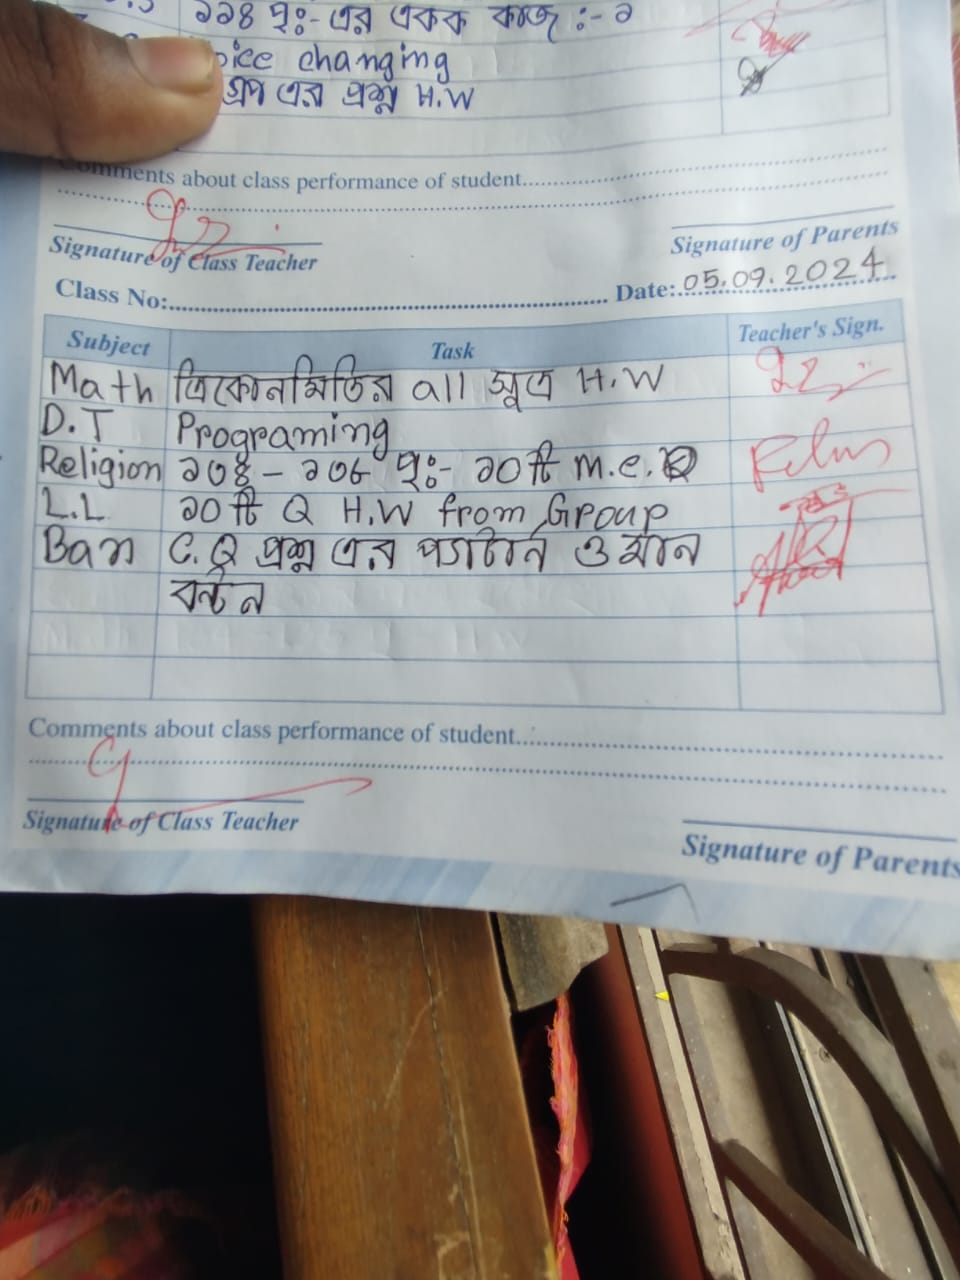 ১১৪ পৃঃ- এর একক কাজ :- ১
oice changing
গ্রুপ এর প্রশ্ন H.W
Comments about class performance of student
Signature of Class Teacher
Signature of Parents
Class No:
Date: 05.09.2024
Subject Task Teacher's Sign.
Math ত্রিকোনমিতির all সূত্র H.W
D.T Programing
Religion ১০৪ – ১০৬ পৃঃ- ১০টি M.C.Q
L.L ১০টি Q H.W from Group
Ban C.Q প্রশ্ন এর প্যাটার্ন ও মান
বন্টন
Comments about class performance of student
Signature of Class Teacher
Signature of Parents